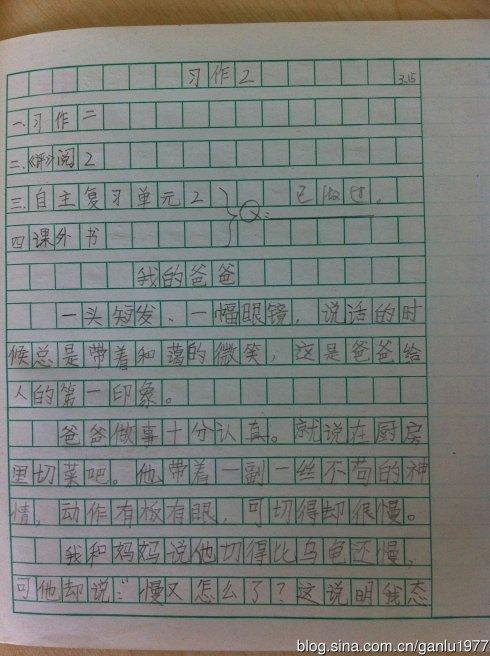 习作2 3.15
一.习作二
二.《评》阅2
三.自主复习单元2
已做过.
四课外书
我的爸爸
一头短发、一幅眼镜，说话的时
候总是带着和蔼的微笑，这是爸爸给
人的第一印象。
爸爸做事十分认真。就说在厨房
里切菜吧。他带着一副一丝不苟的神
情，动作有板有眼，可切得却很慢。
我和妈妈说他切得比乌龟还慢，
可他却说：“慢又怎么了？这说明我态
blog.sina.com.cn/ganlu1977